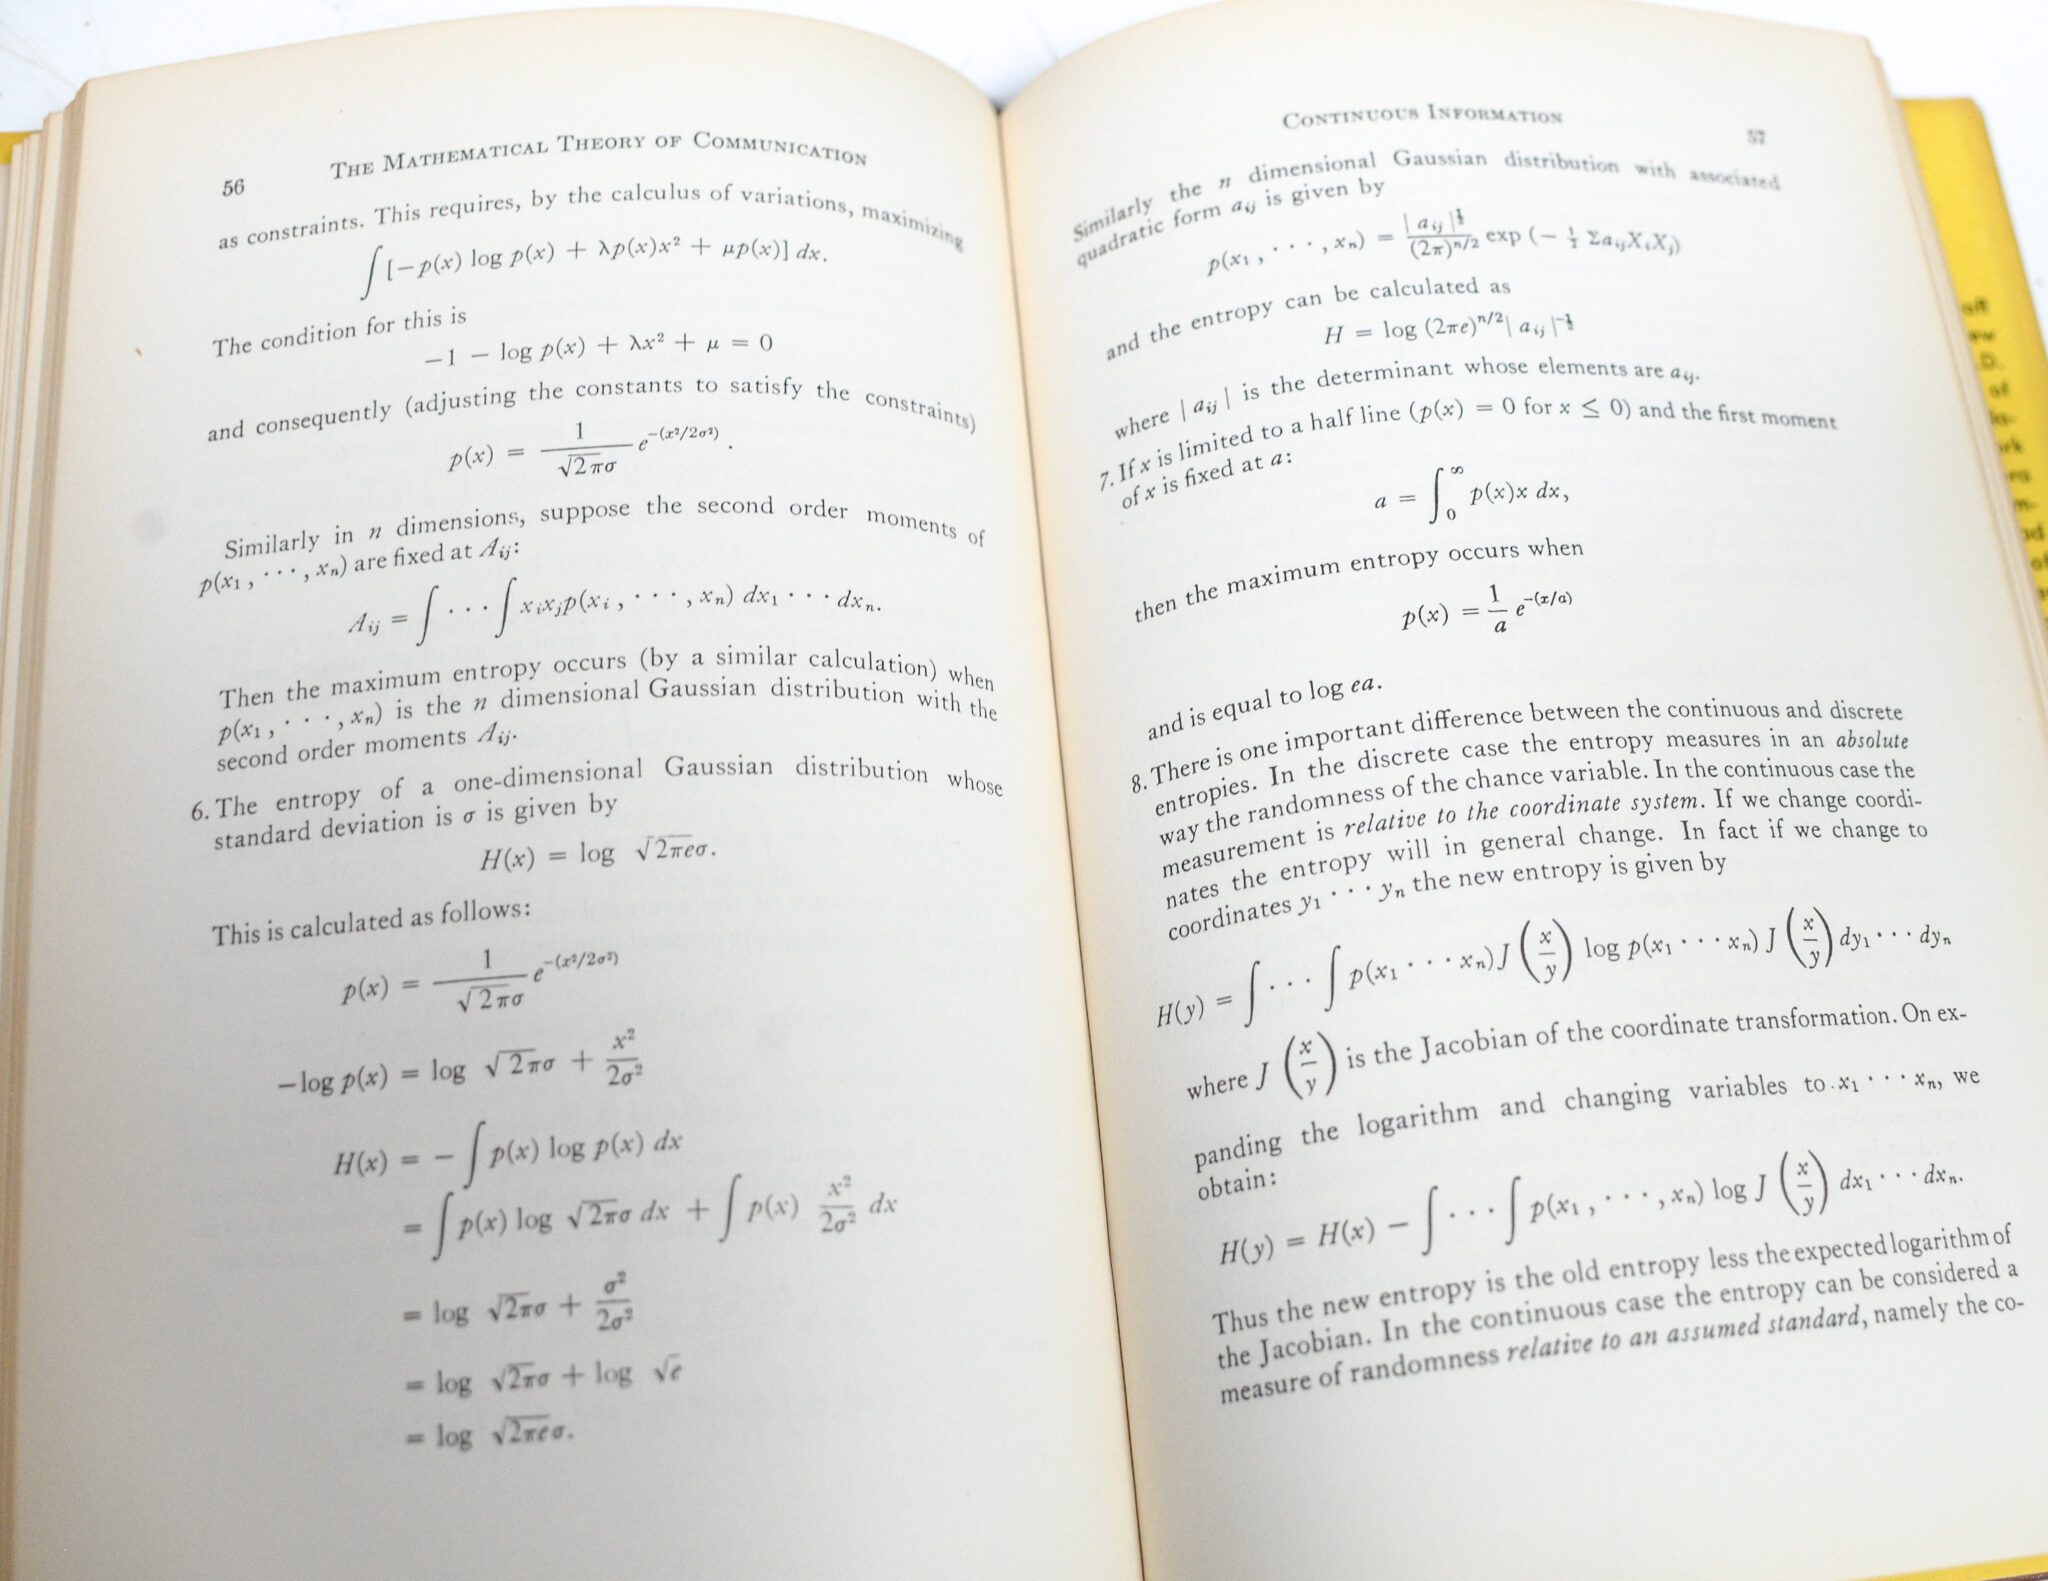 56 THE MATHEMATICAL THEORY OF COMMUNICATION
as constraints. This requires, by the calculus of variations, maximizing
∫[−p(x) log p(x) + λp(x)x² + μp(x)] dx.
The condition for this is
−1 − log p(x) + λx² + μ = 0
and consequently (adjusting the constants to satisfy the constraints)
p(x) = 1/(√2πσ) e^−(x²/2σ²).
Similarly in n dimensions, suppose the second order moments of
p(x₁, · · · , xₙ) are fixed at Aᵢⱼ:
Aᵢⱼ = ∫ · · · ∫ xᵢxⱼp(xᵢ, · · · , xₙ) dx₁ · · · dxₙ.
Then the maximum entropy occurs (by a similar calculation) when
p(x₁, · · · , xₙ) is the n dimensional Gaussian distribution with the
second order moments Aᵢⱼ.
6. The entropy of a one-dimensional Gaussian distribution whose
standard deviation is σ is given by
H(x) = log √2πeσ.
This is calculated as follows:
p(x) = 1/(√2πσ) e^−(x²/2σ²)
−log p(x) = log √2πσ + x²/2σ²
H(x) = − ∫ p(x) log p(x) dx
= ∫ p(x) log √2πσ dx + ∫ p(x) x²/2σ² dx
= log √2πσ + σ²/2σ²
= log √2πσ + log √e
= log √2πeσ.
CONTINUOUS INFORMATION 57
Similarly the n dimensional Gaussian distribution with associated
quadratic form aᵢⱼ is given by
p(x₁, · · · , xₙ) = |aᵢⱼ|^½/(2π)^n/2 exp (− ½ ΣaᵢⱼXᵢXⱼ)
and the entropy can be calculated as
H = log (2πe)^n/2 |aᵢⱼ|^−½
where |aᵢⱼ| is the determinant whose elements are aᵢⱼ.
7. If x is limited to a half line (p(x) = 0 for x ≤ 0) and the first moment
of x is fixed at a:
a = ∫₀^∞ p(x)x dx,
then the maximum entropy occurs when
p(x) = 1/a e^−(x/a)
and is equal to log ea.
8. There is one important difference between the continuous and discrete
entropies. In the discrete case the entropy measures in an absolute
way the randomness of the chance variable. In the continuous case the
measurement is relative to the coordinate system. If we change coordi-
nates the entropy will in general change. In fact if we change to
coordinates y₁ · · · yₙ the new entropy is given by
H(y) = ∫ · · · ∫ p(x₁ · · · xₙ) J (x/y) log p(x₁ · · · xₙ) J (x/y) dy₁ · · · dyₙ
where J (x/y) is the Jacobian of the coordinate transformation. On ex-
panding the logarithm and changing variables to x₁ · · · xₙ, we
obtain:
H(y) = H(x) − ∫ · · · ∫ p(x₁, · · · , xₙ) log J (x/y) dx₁ · · · dxₙ.
Thus the new entropy is the old entropy less the expected logarithm of
the Jacobian. In the continuous case the entropy can be considered a
measure of randomness relative to an assumed standard, namely the co-